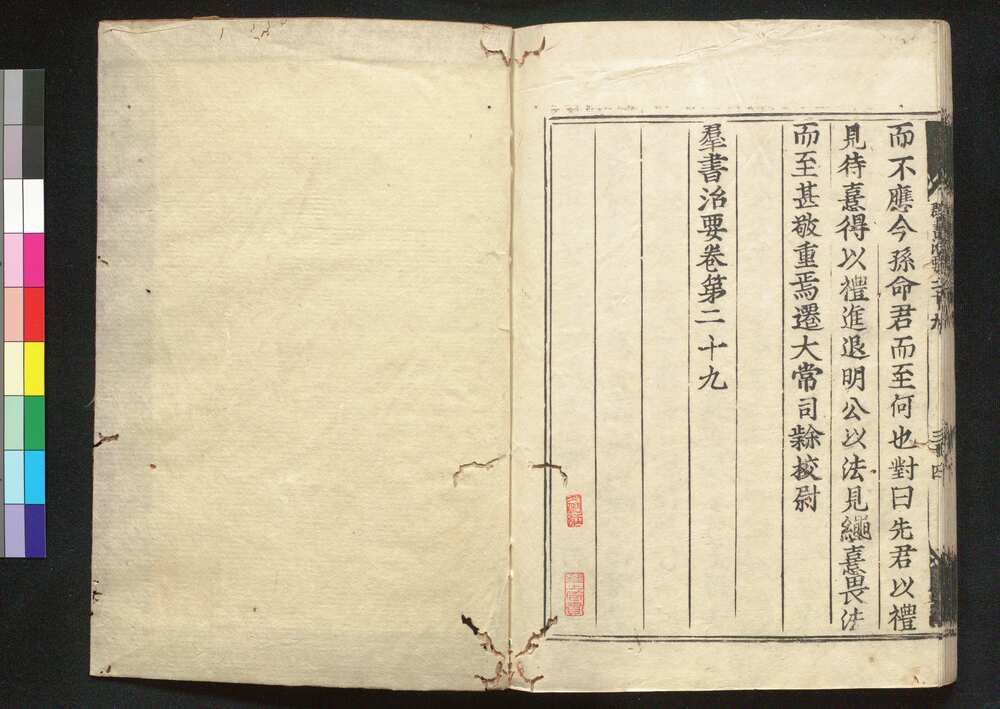 而不應今孫命君而至何也對曰先君以禮
見待憙得以禮進退明公以法見繩憙畏法
而至甚敬重焉遷大常司隸校尉
羣書治要卷第二十九